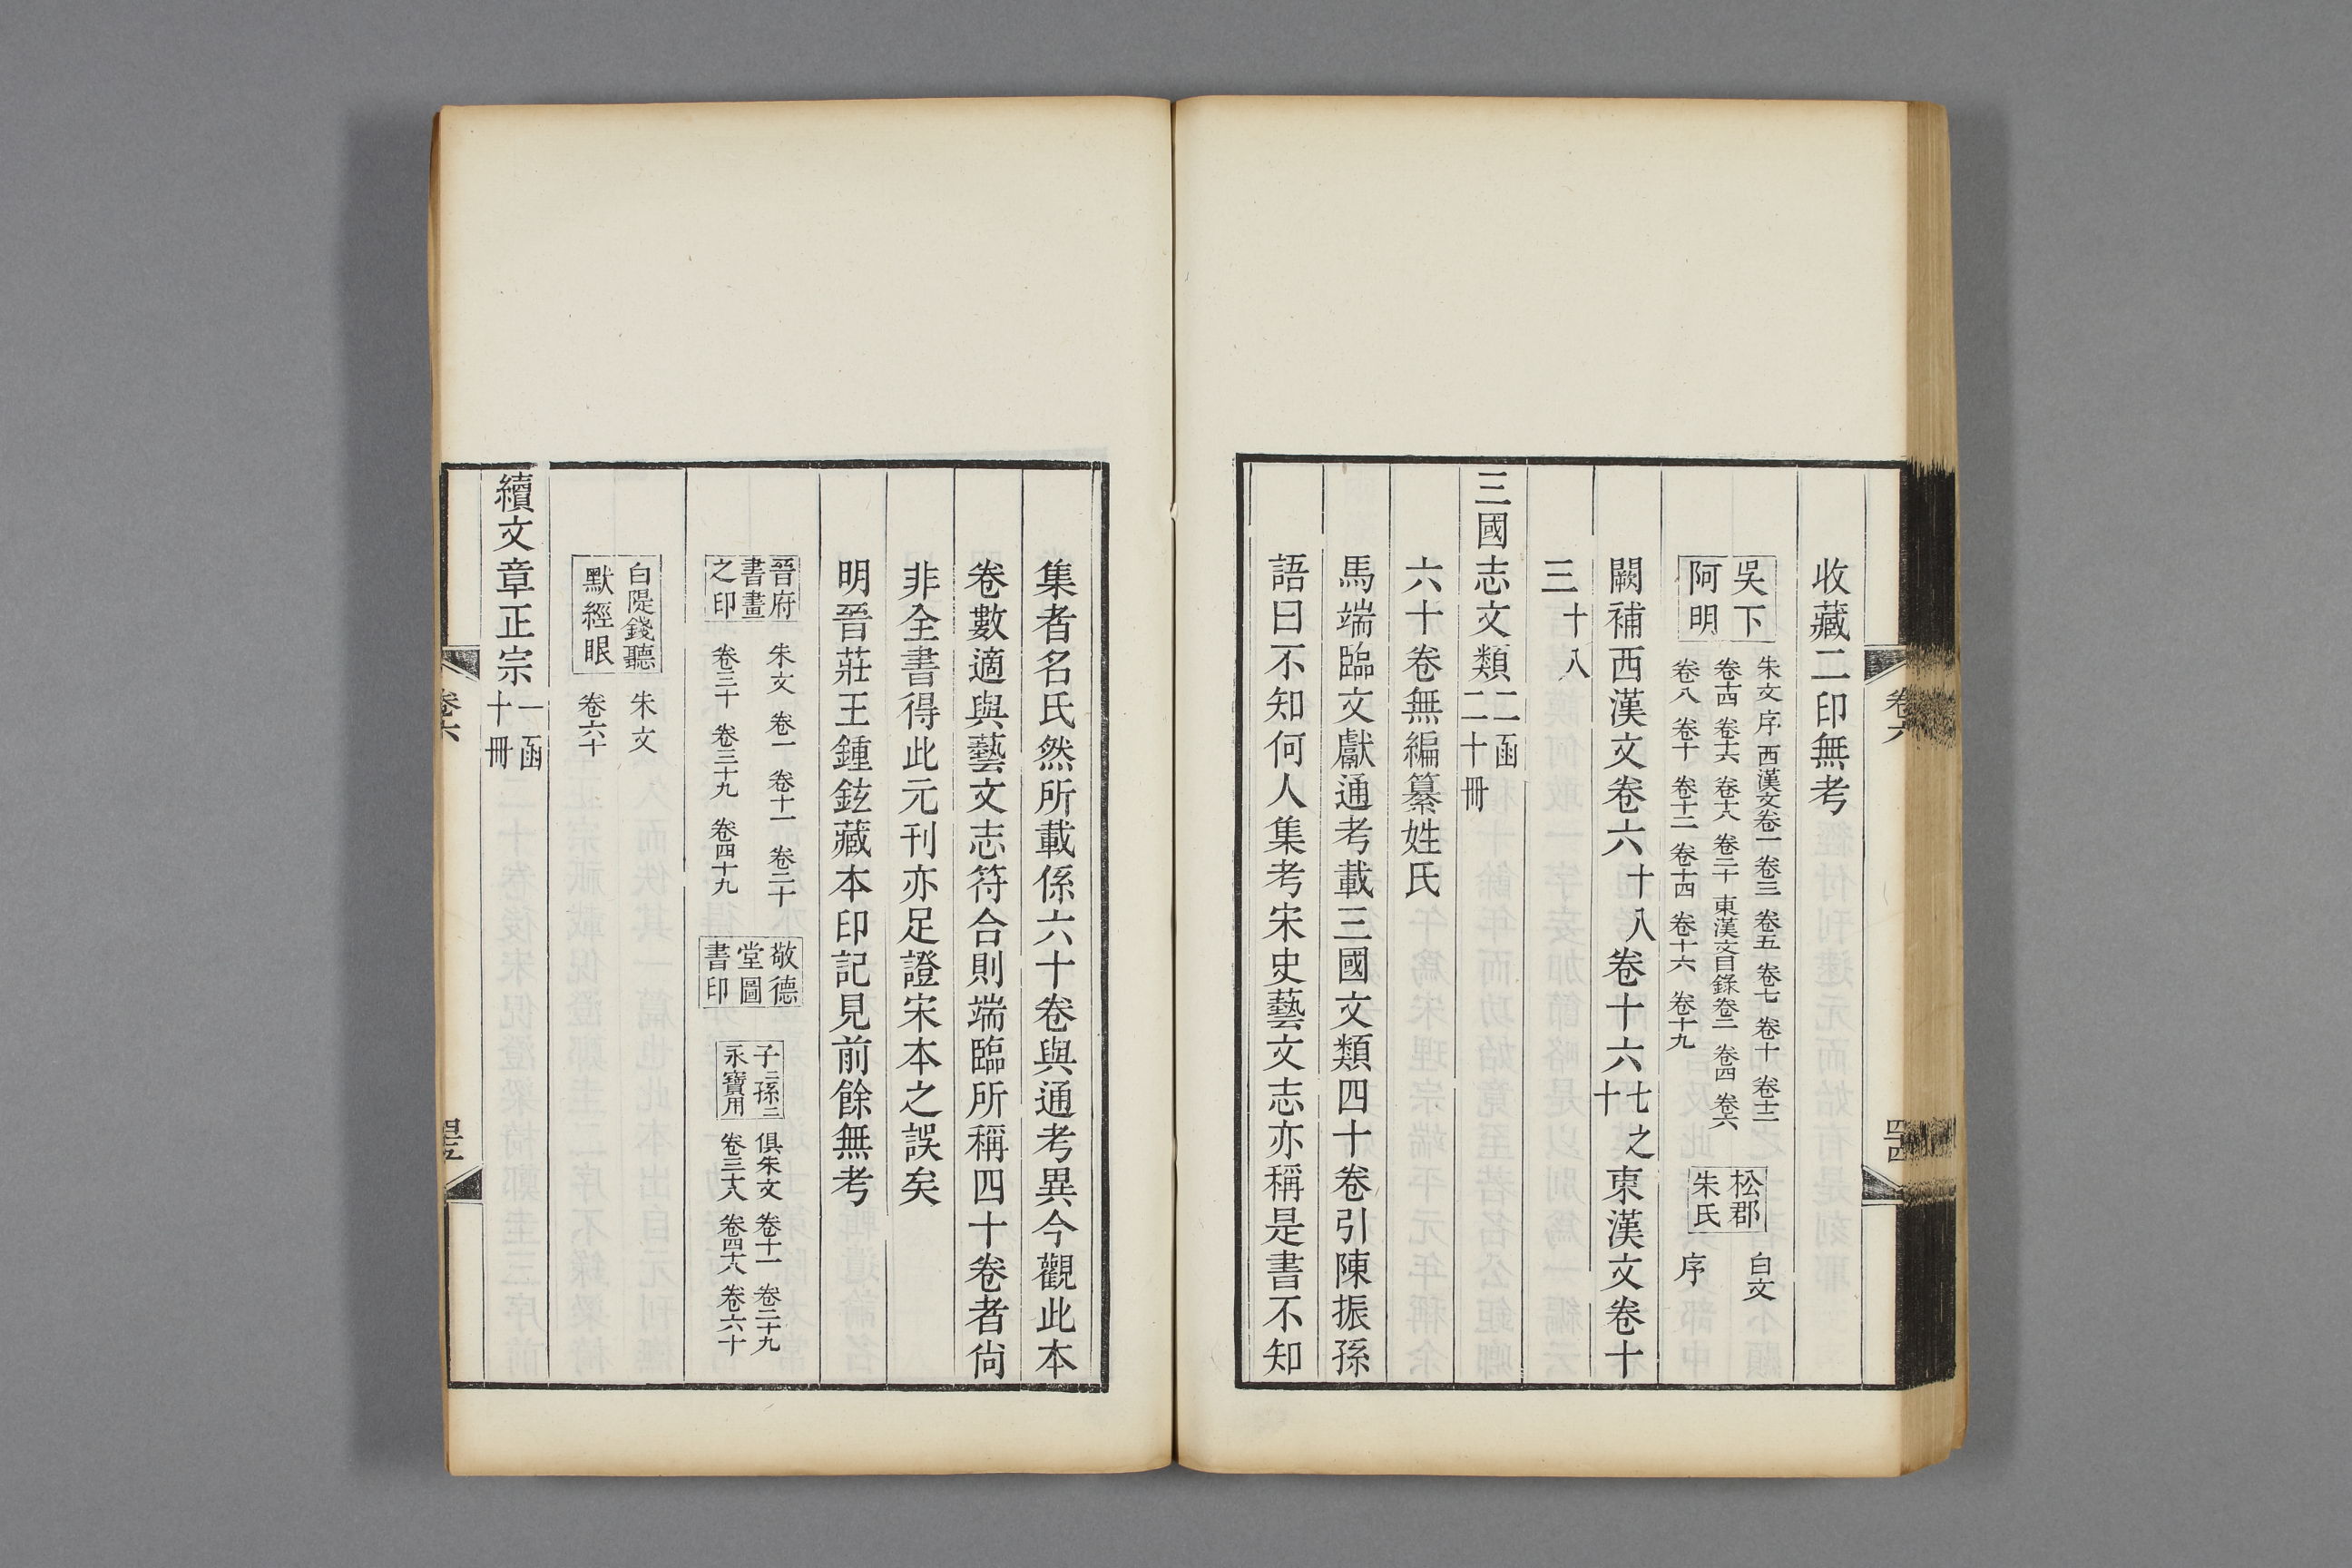 收藏二印無考
吳下
阿明
朱文 序 西漢文卷一 卷三 卷五 卷七 卷十 卷十二
卷十四 卷十六 卷十八 卷二十 東漢文目錄卷二 卷四 卷六
卷八 卷十 卷十二 卷十四 卷十六 卷十九
松郡
朱氏
白文
序
闕補西漢文卷六 十八 卷十六 十七之 東漢文卷十
三 十八
三國志文類 二函 二十冊
六十卷無編纂姓氏
馬端臨文獻通考載三國文類四十卷引陳振孫
語曰不知何人集考宋史藝文志亦稱是書不知
卷六
集者名氏然所載係六十卷與通考異今觀此本
卷數適與藝文志符合則端臨所稱四十卷者尙
非全書得此元刊亦足證宋本之誤矣
明晉莊王鍾鉉藏本印記見前餘無考
晉府
書畫
之印
朱文 卷一 卷十一 卷二十
卷三十 卷三十九 卷四十九
敬德
堂圖
書印
子二孫二
永寶用
俱朱文 卷十一 卷二十九
卷三十八 卷四十八 卷六十
白隄錢聽
默經眼
朱文
卷六十
續文章正宗 一函 十冊